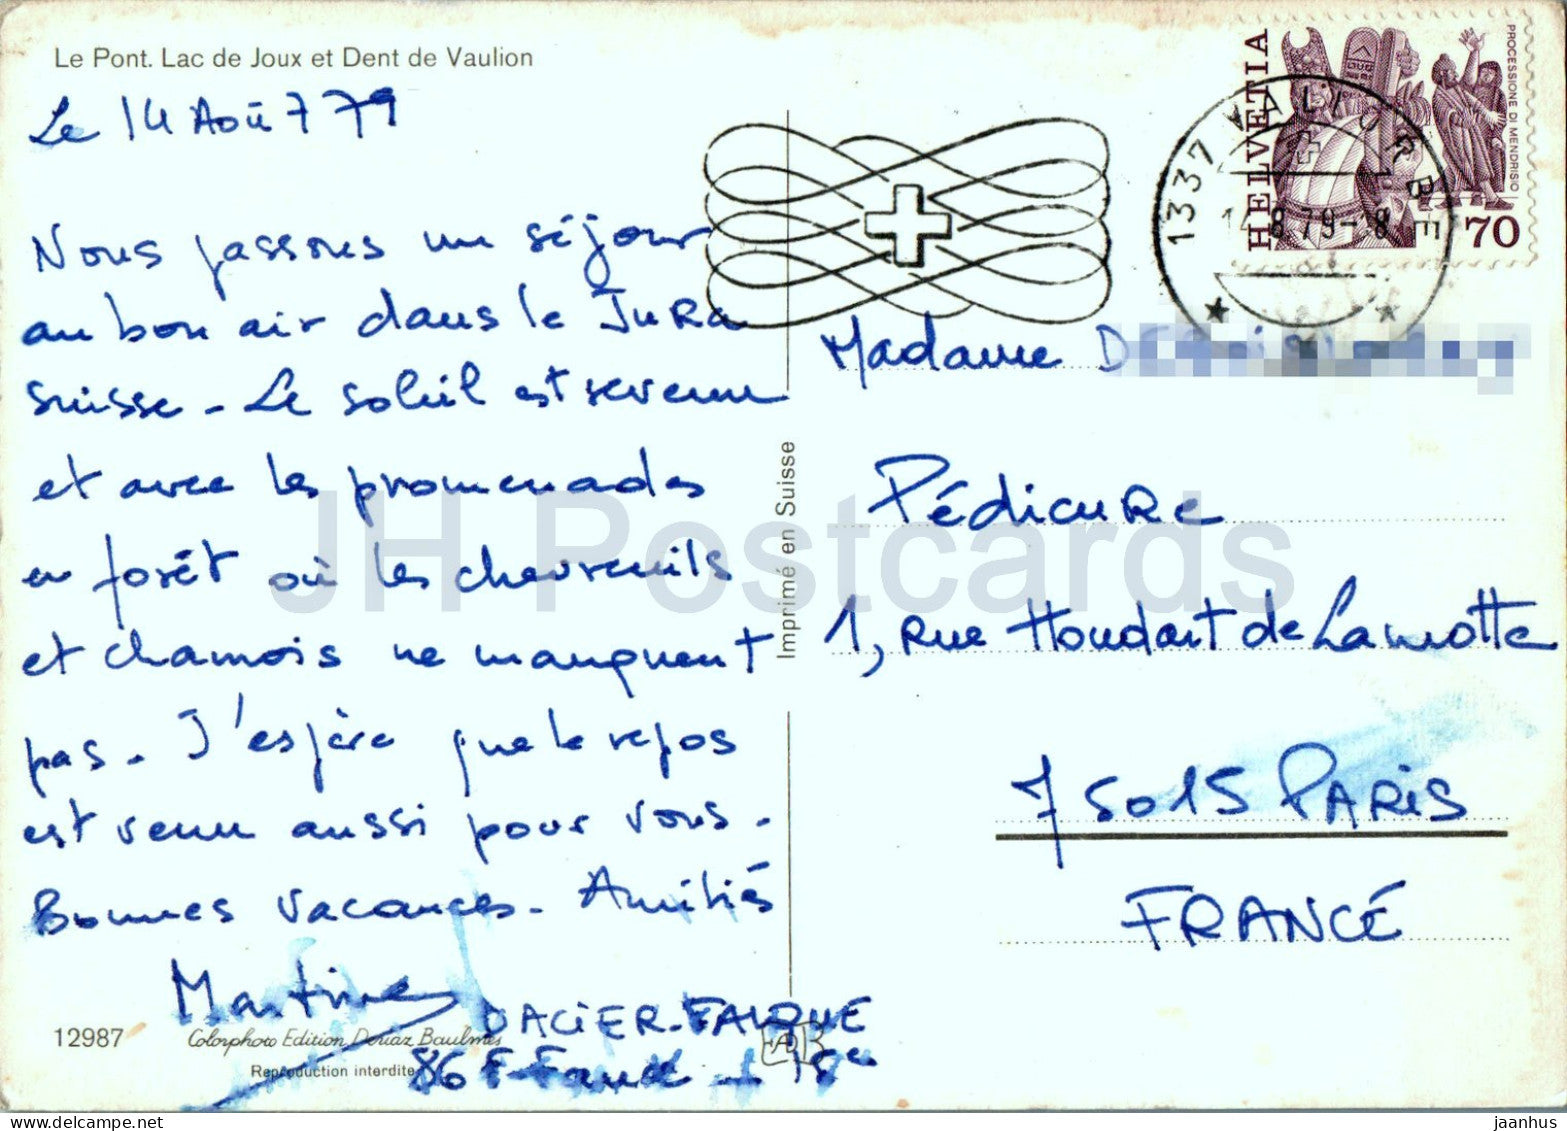 Le Pont. Lac de Joux et Dent de Vaulion
Le 14 Août 79
Nous passons un séjour
au bon air dans le Jura
suisse - Le soleil est revenu
et avec les promenades
en forêt où les chevreuils
et chamois ne manquent
pas. J'espère que le repos
est venu aussi pour vous.
Bonnes vacances. Amitiés
Martine
DACIER-FALQUE
86 F-Faure - 15e
12987
Colorphoto Edition Deriaz Baulmes
Reproduction interdite
Imprimé en Suisse
HELVETIA
PROCESSIONE DI MENDRISIO
70
1337 VALLORBE
14.8.79-8
Madame
Pédicure
1, rue Houdart de Lamotte
75015 PARIS
FRANCE
JH Postcards
jaanhus